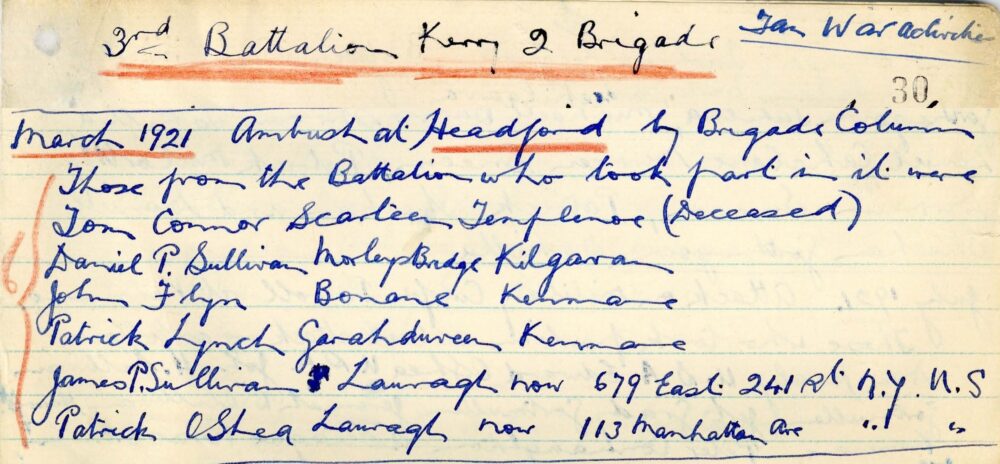 3rd Battalion Kerry 2 Brigade
30.
March 1921 Ambush at Headford by Brigade Column
Those from the Battalion who took part in it were
Tom Connor Scarteen Templenoe (Deceased)
Daniel P. Sullivan Morleys Bridge Kilgarvan
John Flyn Bonane Kenmare
Patrick Lynch Kenmare
James P. Sullivan Lauragh now 679 East 241 St N.Y. U.S
Patrick OShea Lauragh now 113 Manhattan Ave " "
6